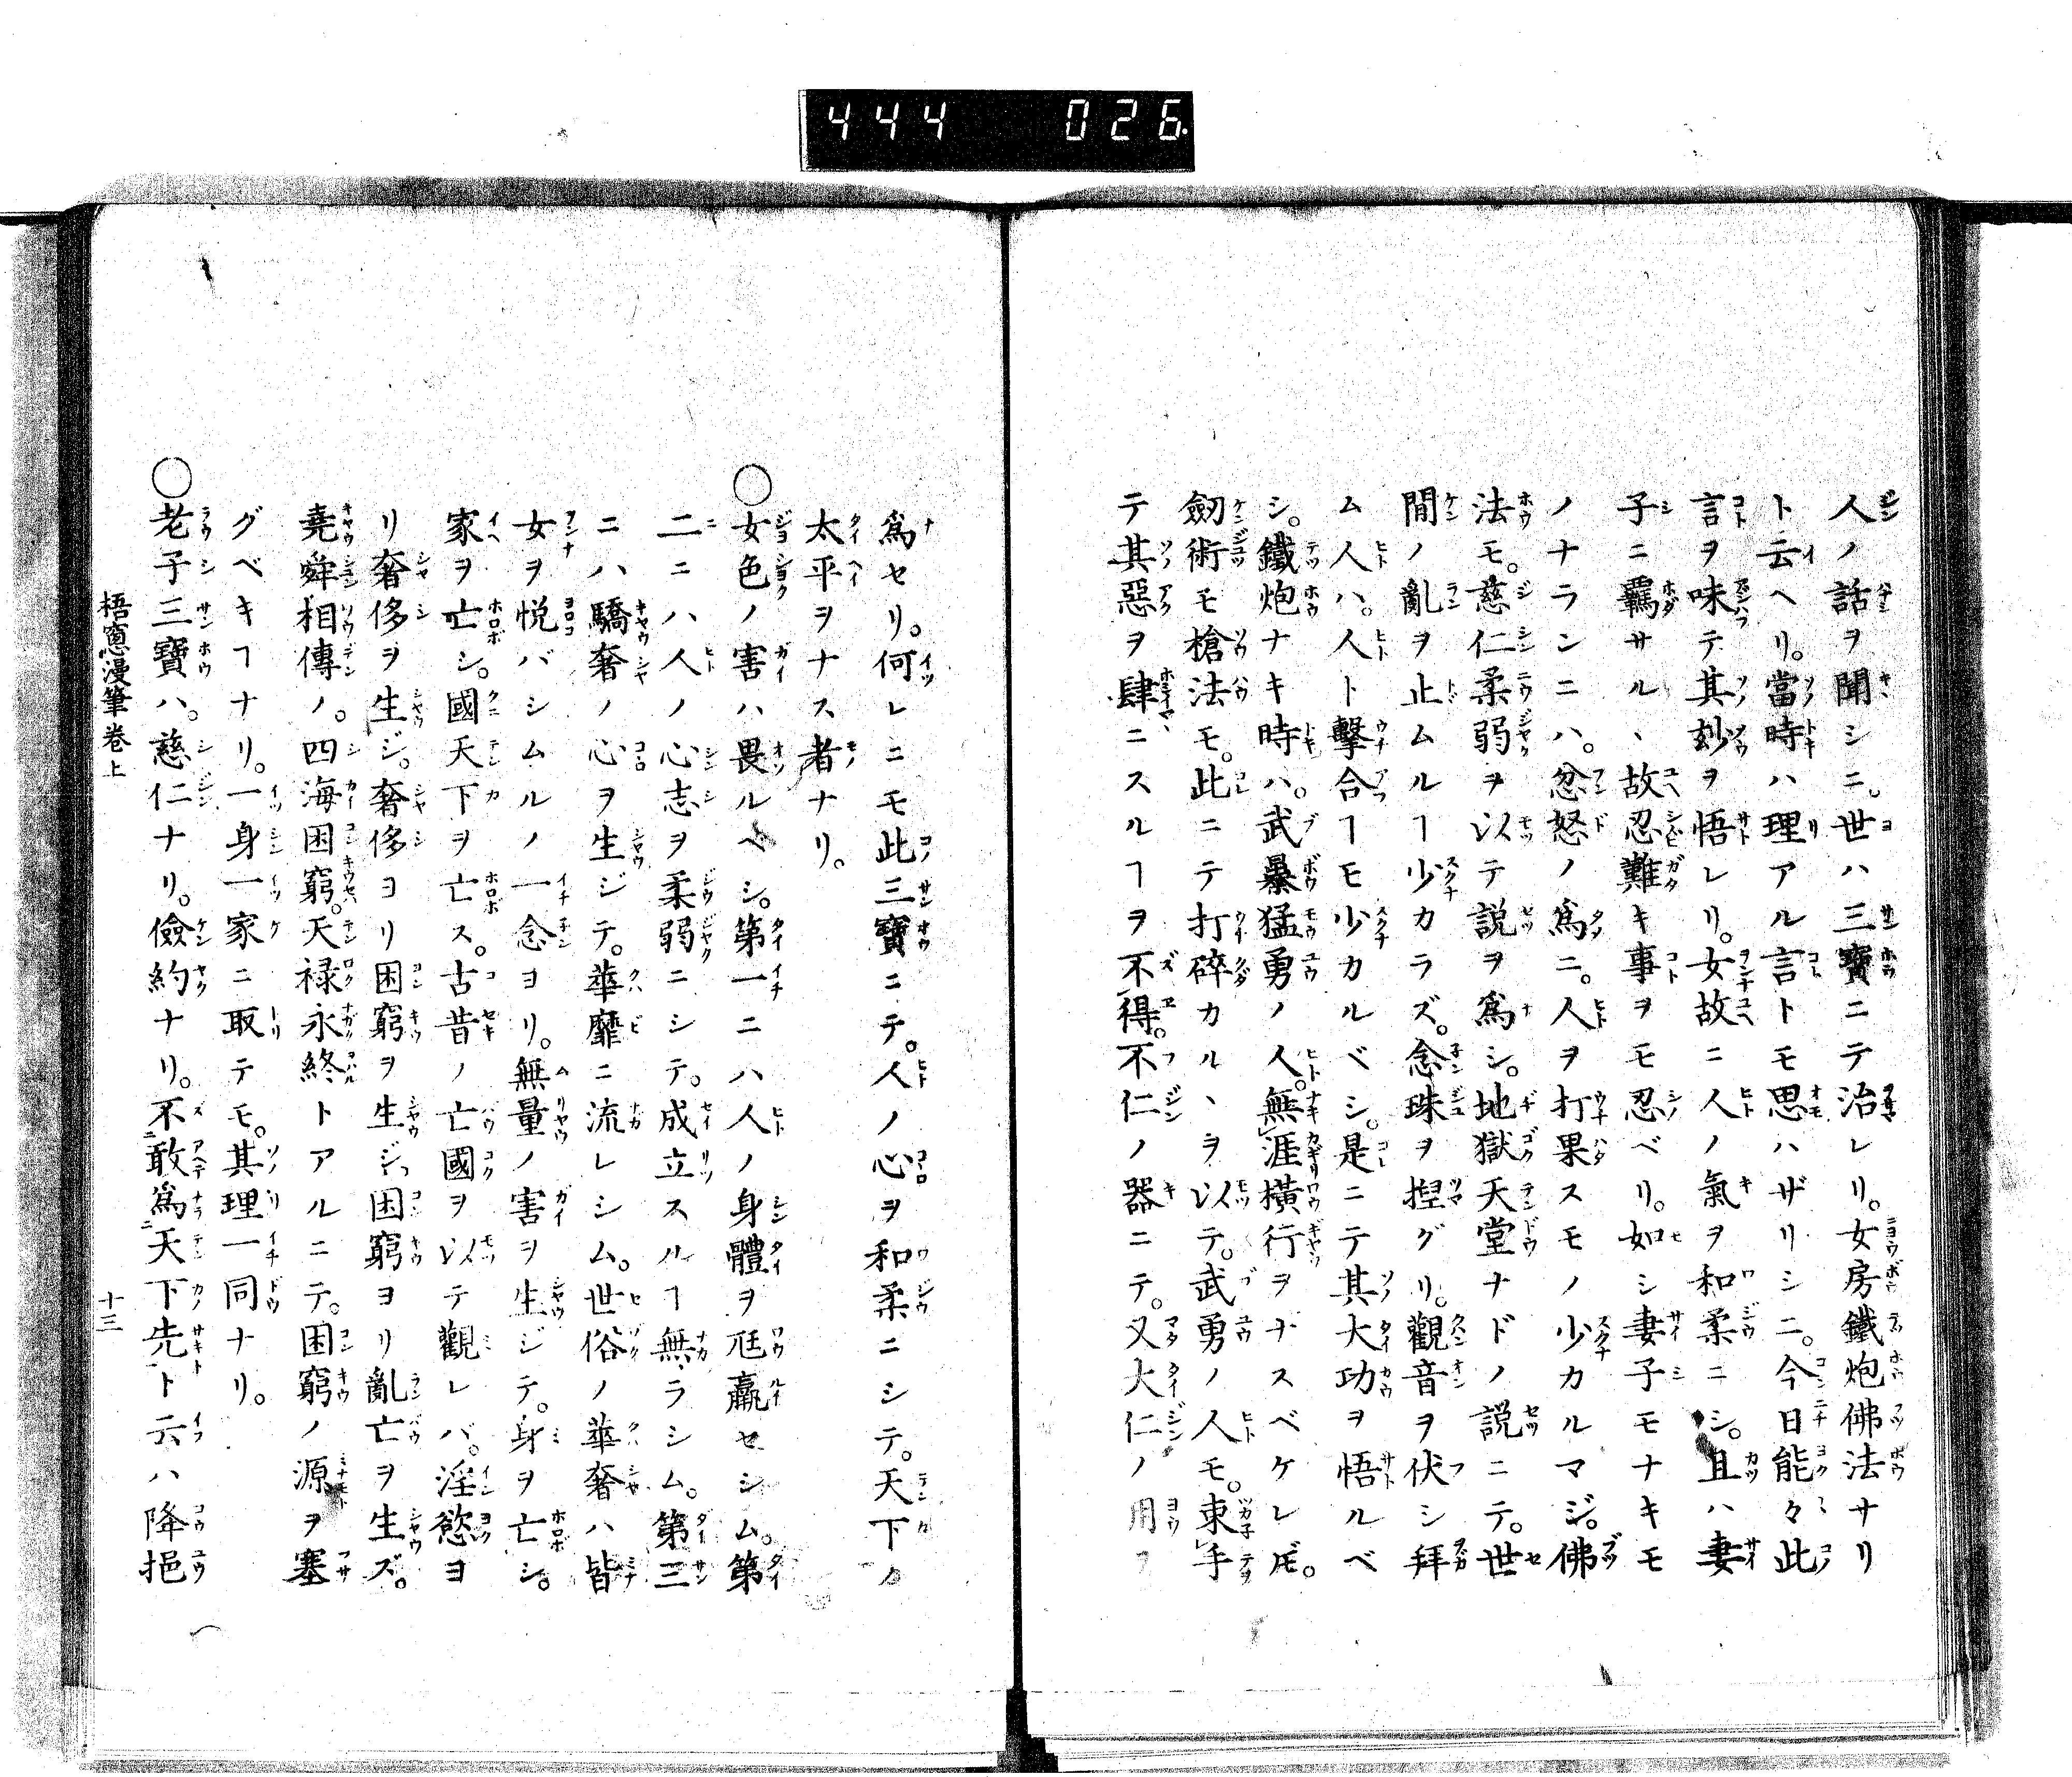 444 026
人ノ話ヲ聞シニ。世ハ三寶ニテ治レリ。女房鐵炮佛法ナリ
ト云ヘリ。當時ハ理アル言トモ思ハザリシニ。今日能々此
言ヲ味テ其玅ヲ悟レリ。女故ニ人ノ氣ヲ和柔ニシ。且ハ妻
子ニ羈サル丶故忍難キ事ヲモ忍ベリ。如シ妻子モナキモ
ノナランニハ。忿怒ノ爲ニ。人ヲ打果スモノ少カルマジ。佛
法モ。慈仁柔弱ヲ以テ説ヲ爲シ。地獄天堂ナドノ説ニテ。世
間ノ亂ヲ止ムルヿ少カラズ。念珠ヲ揑グリ。觀音ヲ伏シ拜
ム人ハ。人ト擊合ヿモ少カルベシ。是ニテ其大功ヲ悟ルベ
シ。鐵炮ナキ時ハ。武暴猛勇ノ人。無涯横行ヲナスベケレ𪜈。
劒術モ槍法モ。此ニテ打碎カル丶ヲ以テ。武勇ノ人モ。束手
テ其惡ヲ肆ニスルヿヲ不得。不仁ノ器ニテ。又大仁ノ用ヲ
爲セリ。何レニモ此三寶ニテ。人ノ心ヲ和柔ニシテ。天下ノ
太平ヲナス者ナリ。
○女色ノ害ハ畏ルベシ。第一ニハ人ノ身體ヲ尫羸セシム。第
二ニハ人ノ心志ヲ柔弱ニシテ。成立スルヿ無ラシム。第三
ニハ驕奢ノ心ヲ生ジテ。華靡ニ流レシム。世俗ノ華奢ハ皆
女ヲ悦バシムルノ一念ヨリ。無量ノ害ヲ生ジテ。身ヲ亡シ。
家ヲ亡シ。國天下ヲ亡ス。古昔ノ亡國ヲ以テ觀レバ。淫慾ヨ
リ奢侈ヲ生ジ。奢侈ヨリ困窮ヲ生ジ。困窮ヨリ亂亡ヲ生ズ。
堯舜相傳ノ。四海困窮。天禄永終トアルニテ。困窮ノ源ヲ塞
グベキヿナリ。一身一家ニ取テモ。其理一同ナリ。
○老子三寶ハ。慈仁ナリ。儉約ナリ。不敢爲天下先ト云ハ降挹
梧窻漫筆卷上 十三